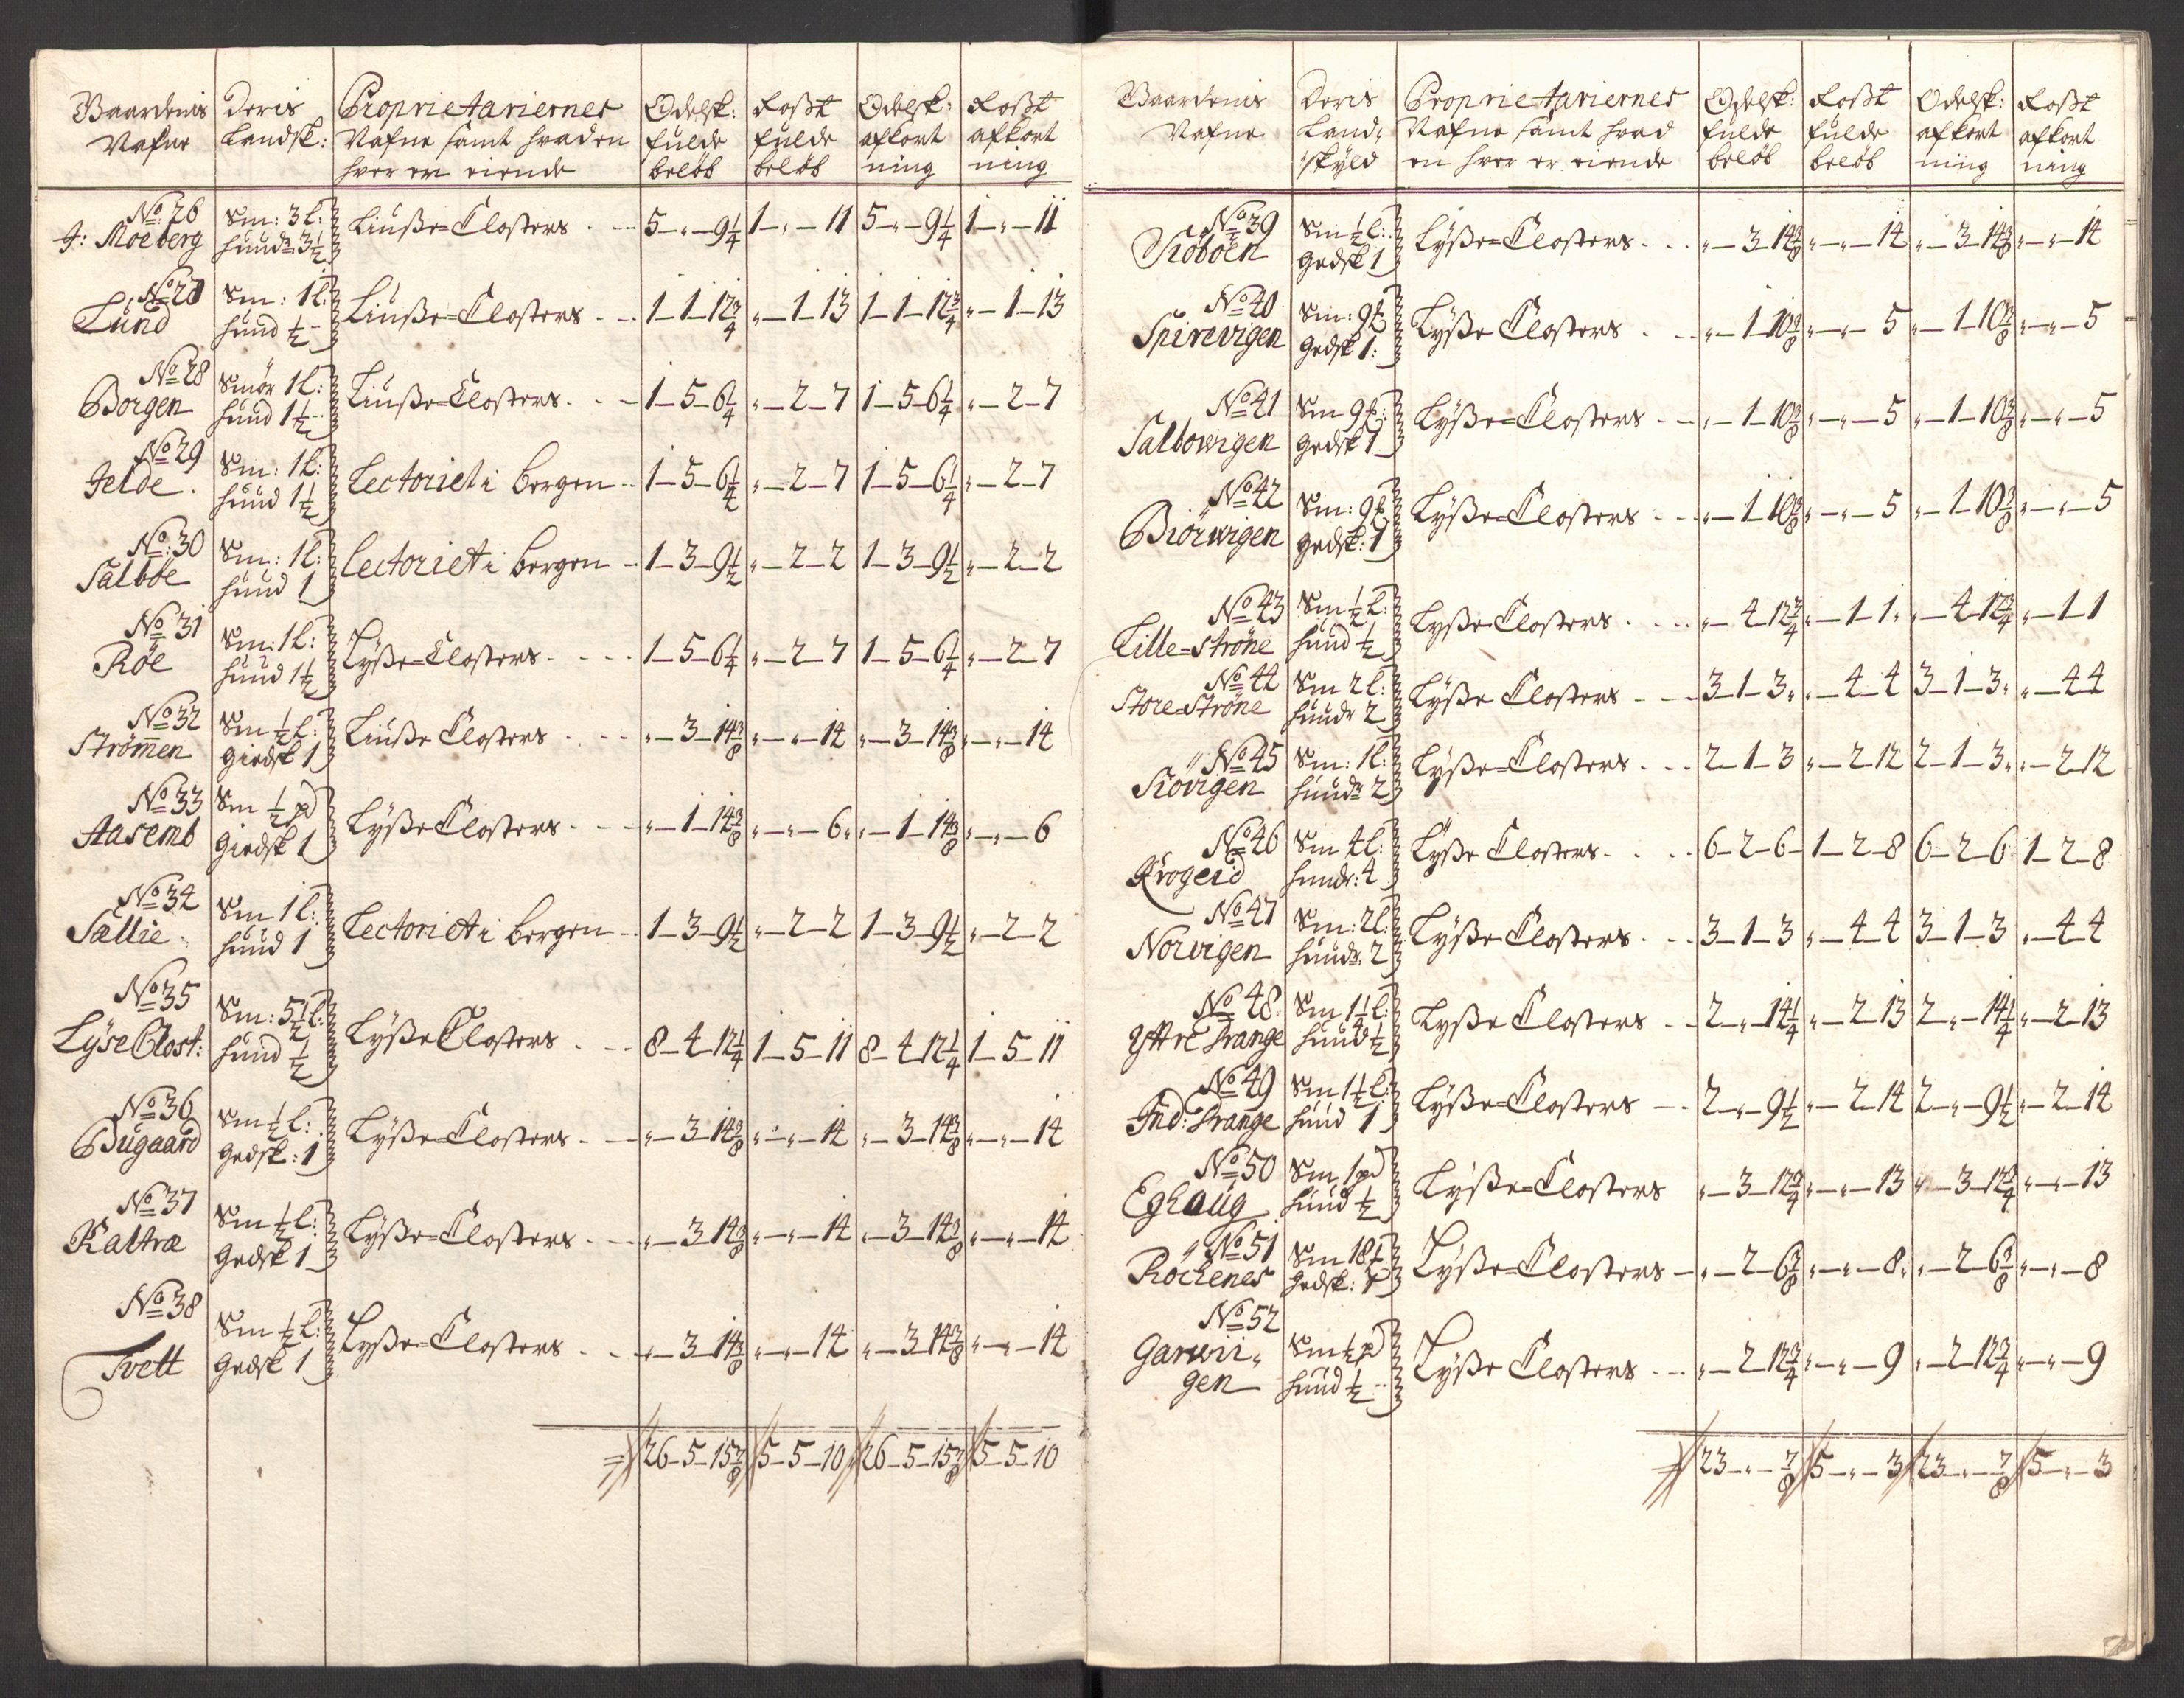 Gaardenis Nafne	Deris Landsk:	Proprietariernes Nafne samt hvad en hver er eiende	Odelsk: fulde beløb	Roßt fulde beløb	Odelsk: afkortning	Roßt afkortning
No: 26 J: Moeberg	Sm: 3 l: huude 3½	Liuße=Closters	5 " 9¼	1 " 11	5 " 9¼	1 " 11
No 27 Lund	Sm: 1 l: huud ½	Liuße=Closters	1 1 12¾	" 1 13	1 1 12¾	" 1 13
No 28 Borgen	Smör 1 l: huud 1½	Liuße=Closters	1 5 6¼	" 2 7	1 5 6¼	" 2 7
No 29 Jelde	Sm: 1 l: huud 1½	Lectoriet i bergen	1 5 6¼	" 2 7	1 5 6¼	" 2 7
No: 30 Salboe	Sm: 1 l: huud 1	Lectoriet i bergen	1 3 9½	" 2 2	1 3 9½	" 2 2
No 31 Röe	Sm: 1 l: huud 1½	Lyße=Closters	1 5 6¼	" 2 7	1 5 6¼	" 2 7
No 32 Strömen	Sm ½ l: giedsk 1	Liuße Closters	" 3 14⅜	" " 14	" 3 14⅜	" " 14
No 33 Aasemb	Sm ½ pd giedsk 1	Lyße Closters	" 1 14⅜	" " 6	" 1 14⅜	" " 6
No 34 Sællie	Sm 1 l: huud 1	Lectoriet i bergen	1 3 9½	" 2 2	1 3 9½	" 2 2
No 35 Lyse Clost:	Sm: 5½ l: huud ½	Lyße Closters	8 4 12¼	1 5 11	8 4 12¼	1 5 11
No 36 Bugaard	Sm ½ l: gedsk: 1	Lyße=Closters	" 3 14⅜	" " 14	" 3 14⅜	" " 14
No 37 Kaltræ	Sm ½ l: gedsk 1	Lyße=Closters	" 3 14⅜	" " 14	" 3 14⅜	" " 14
No 38 Tvett	Sm ½ l: gedsk 1	Lyße=Closters	" 3 14⅜	" " 14	" 3 14⅜	" " 14
26 5 15⅞	5 5 10	26 5 15⅞	5 5 10
Gaardenis Nafne	Deris Landskyld	Proprietariernes Nafne samt hvad en hver er eiende	Odelsk: fulde beløb	Roßt fulde beløb	Odelsk: afkortning	Roßt afkortning
No 39 Siöboen	Sm ½ l: gedsk 1	Lyße=Closters	" 3 14⅜	" " 14	" 3 14⅜	" " 14
No 40 Spirevigen	Sm: 9 gedsk 1:	Lyße Closters	" 1 10⅜	" " 5	" 1 10⅜	" " 5
No 41 Salbowigen	Sm 9 gedsk 1	Lyße=Closters	" 1 10⅜	" " 5	" 1 10⅜	" " 5
No 42 Biörwigen	Sm: 9 gedsk: 1	Lyße=Closters	" 1 10⅜	" " 5	" 1 10⅜	" " 5
No 43 Lille=ströne	Sm ½ l: huud ½	Lyße Closters	" 4 12¾	" 1 1	" 4 12¾	" 1 1
No 44 Store=Ströne	Sm 2 l: huude 2	Lyße Closters	3 1 3	" 4 4	3 1 3	" 4 4
No 45 Siövigen	Sm: 1 l: huude 2	Lyße=Closters	2 1 3	" 2 12	2 1 3	" 2 12
No 46 Krogeid	Sm 4 l: huude: 4	Lyße Closters	6 2 6	1 2 8	6 2 6	1 2 8
No 47 Norvigen	Sm: 2 l: huude: 2	Lyße Closters	3 1 3	" 4 4	3 1 3	" 4 4
No 48 Yttre Drange	Sm 1½ l: huud ½	Lyße Closters	2 " 14¼	" 2 13	2 " 14¼	" 2 13
No 49 Ind: Drange	Sm 1½ l: huud 1	Lyße=Closters	2 " 9½	" 2 14	2 " 9½	" 2 14
No 50 Eghaug	Sm 1 pd huud ½	Lyße=Closters	" 3 12¾	" " 13	" 3 12¾	" " 13
No 51 Röttenes	Sm 18 gedsk: 1	Lyße=Closters	" 2 6⅜	" " 8	" 2 6⅜	" " 8
No 52 Garwiigen	Sm ½ pd huud ½	Lyße Closters	" 2 12¾	" " 9	" 2 12¾	" " 9
23 " ⅞	5 " 3	23 " ⅞	5 " 3